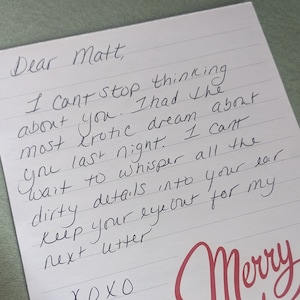 Dear Matt,
I cant stop thinking
about you. I had the
most erotic dream about
you last night. I cant
wait to whisper all the
dirty details into your ear
keep your eye out for my
next letter
XOXO
Merry